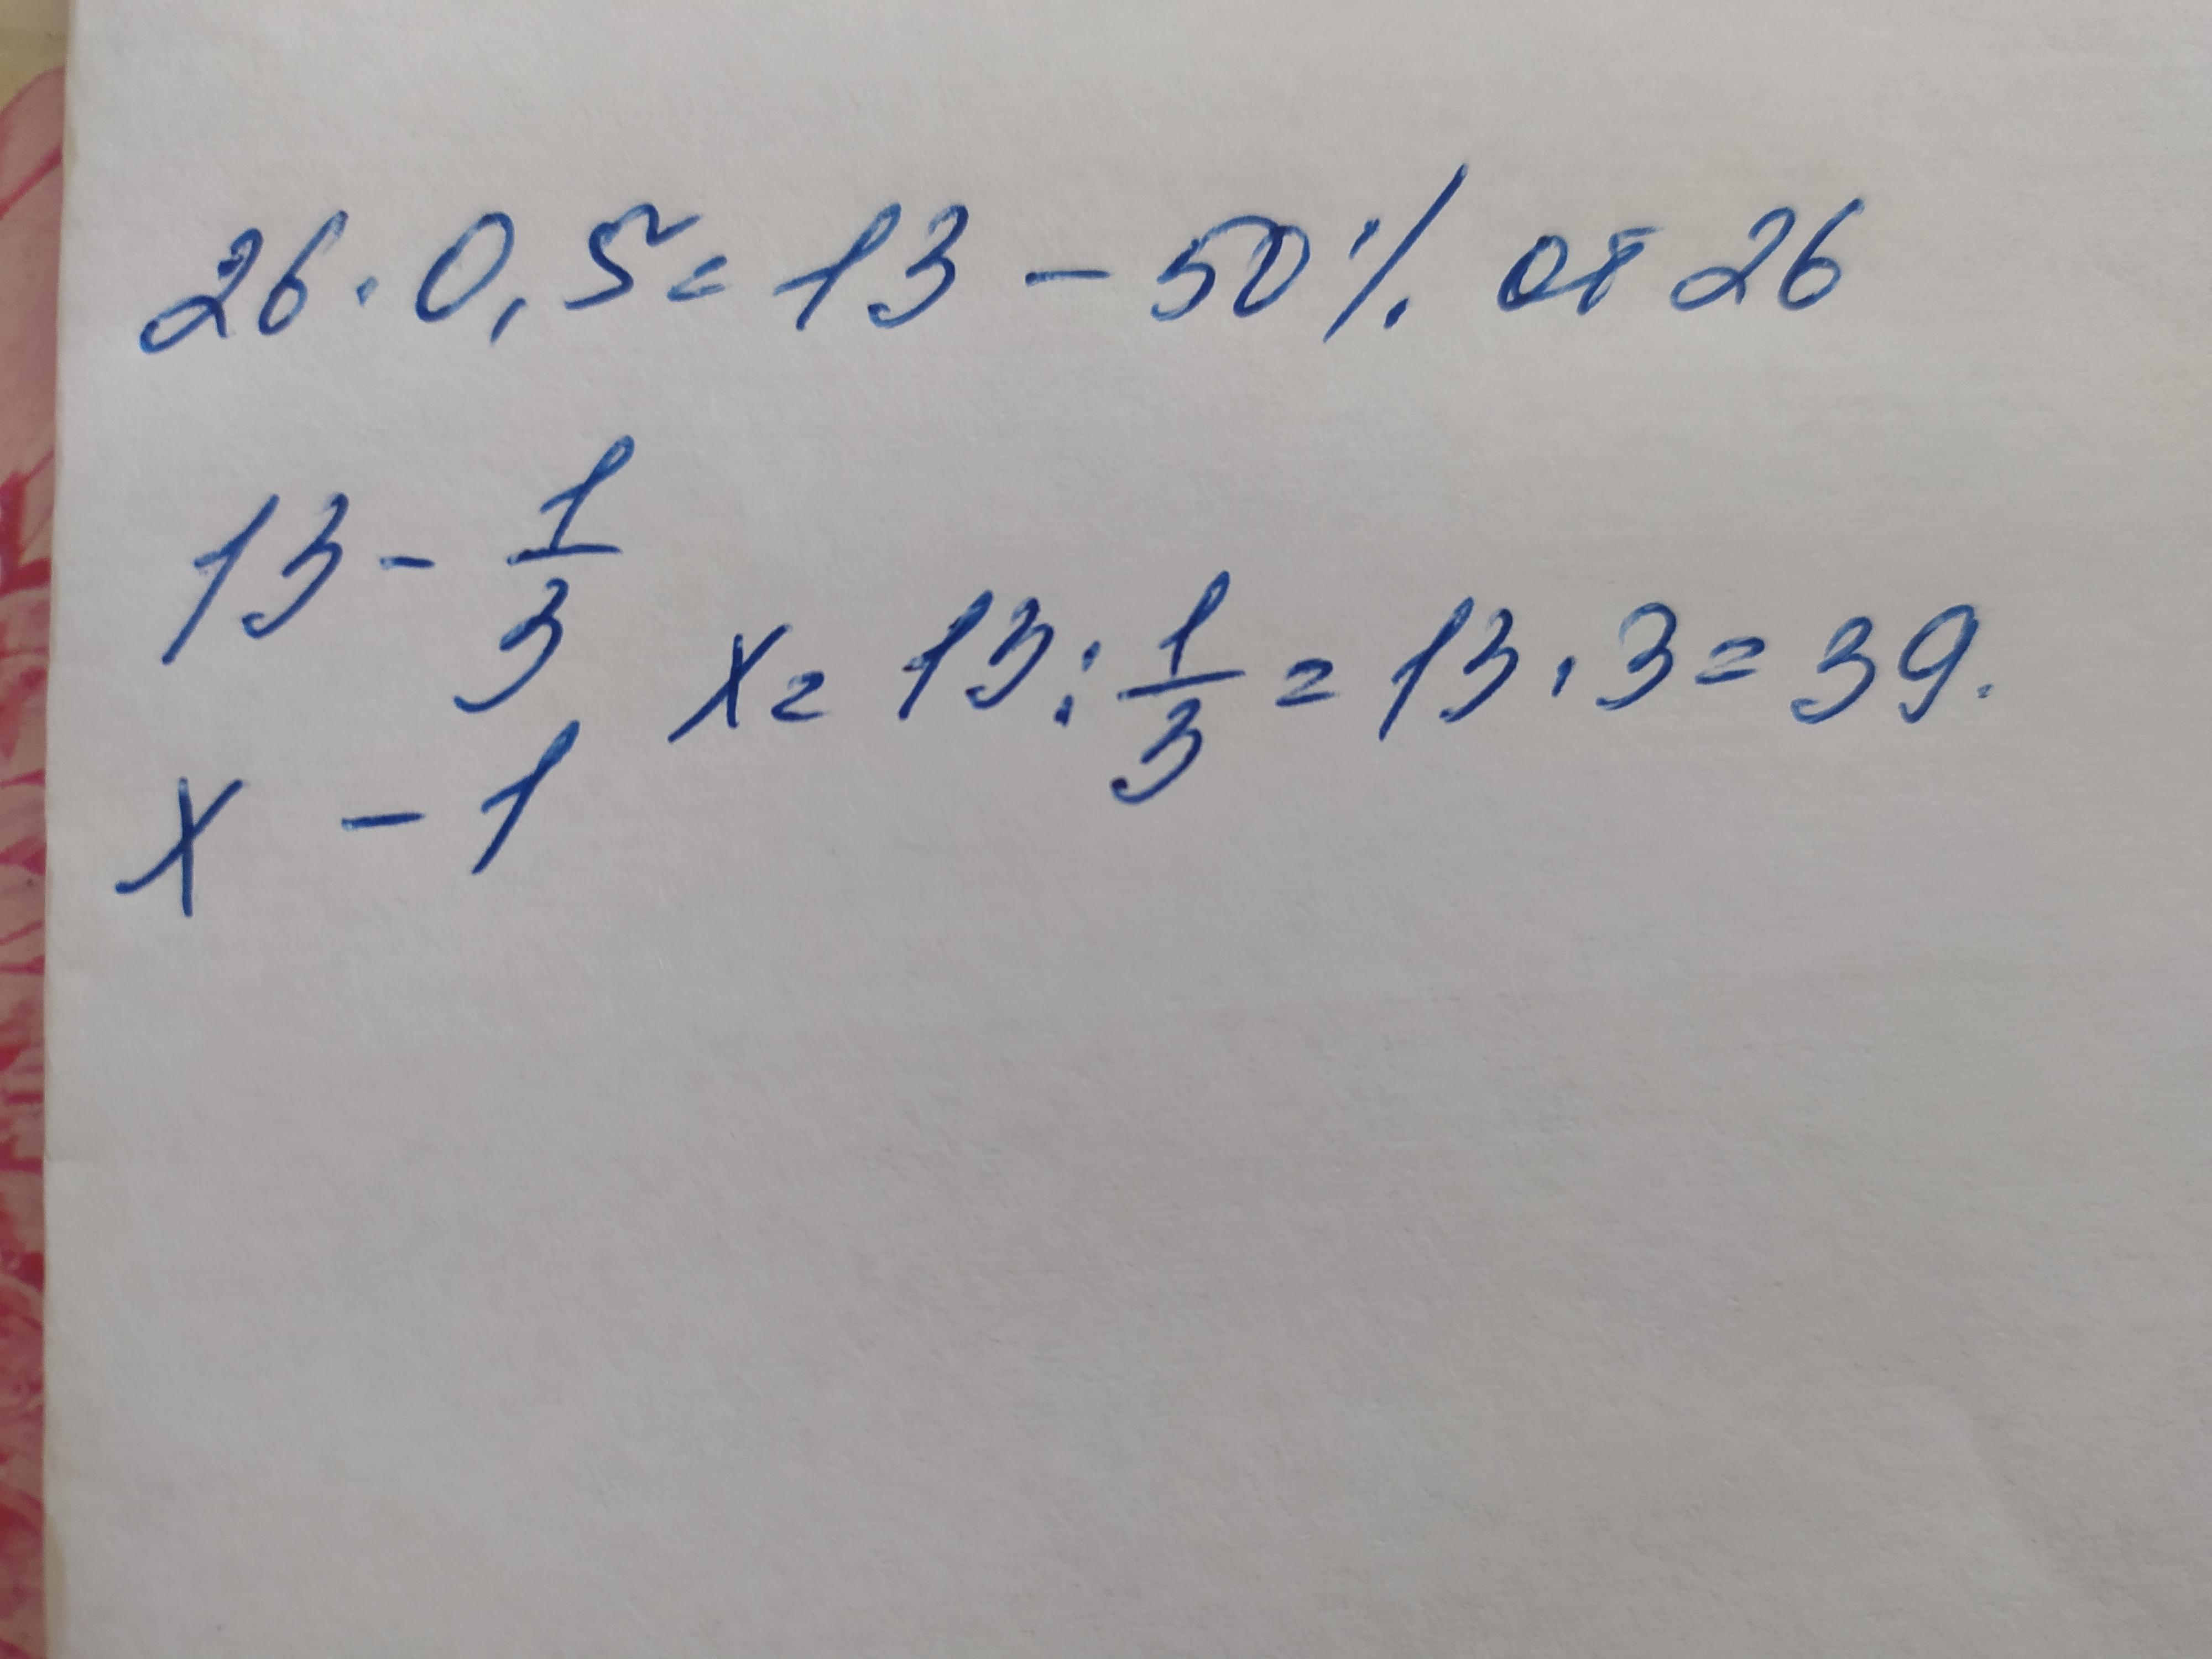 26 · 0,5 = 13 – 50% от 26
13 – 1/3
x = 13 : 1/3 = 13 · 3 = 39.
x – 1